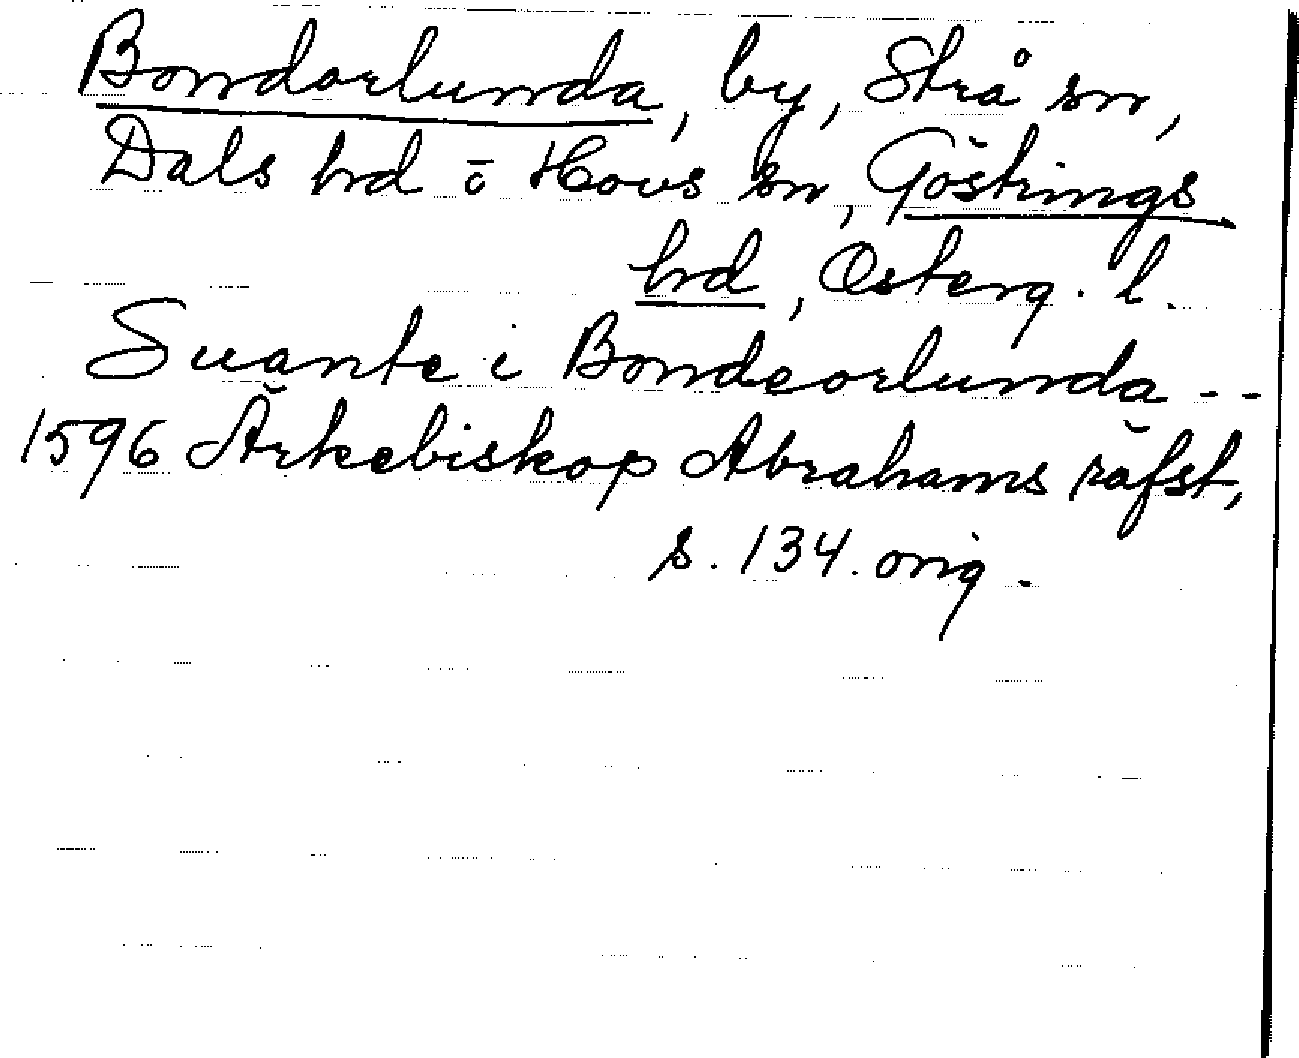 Bondorlunda, by, Strå sn,
Dals hd o Hovs sn, Göstrings
hd, Österg. l.
Suante i Bondeorlunda --
1596 Ärkebiskop Abrahams räfst,
s. 134. orig.